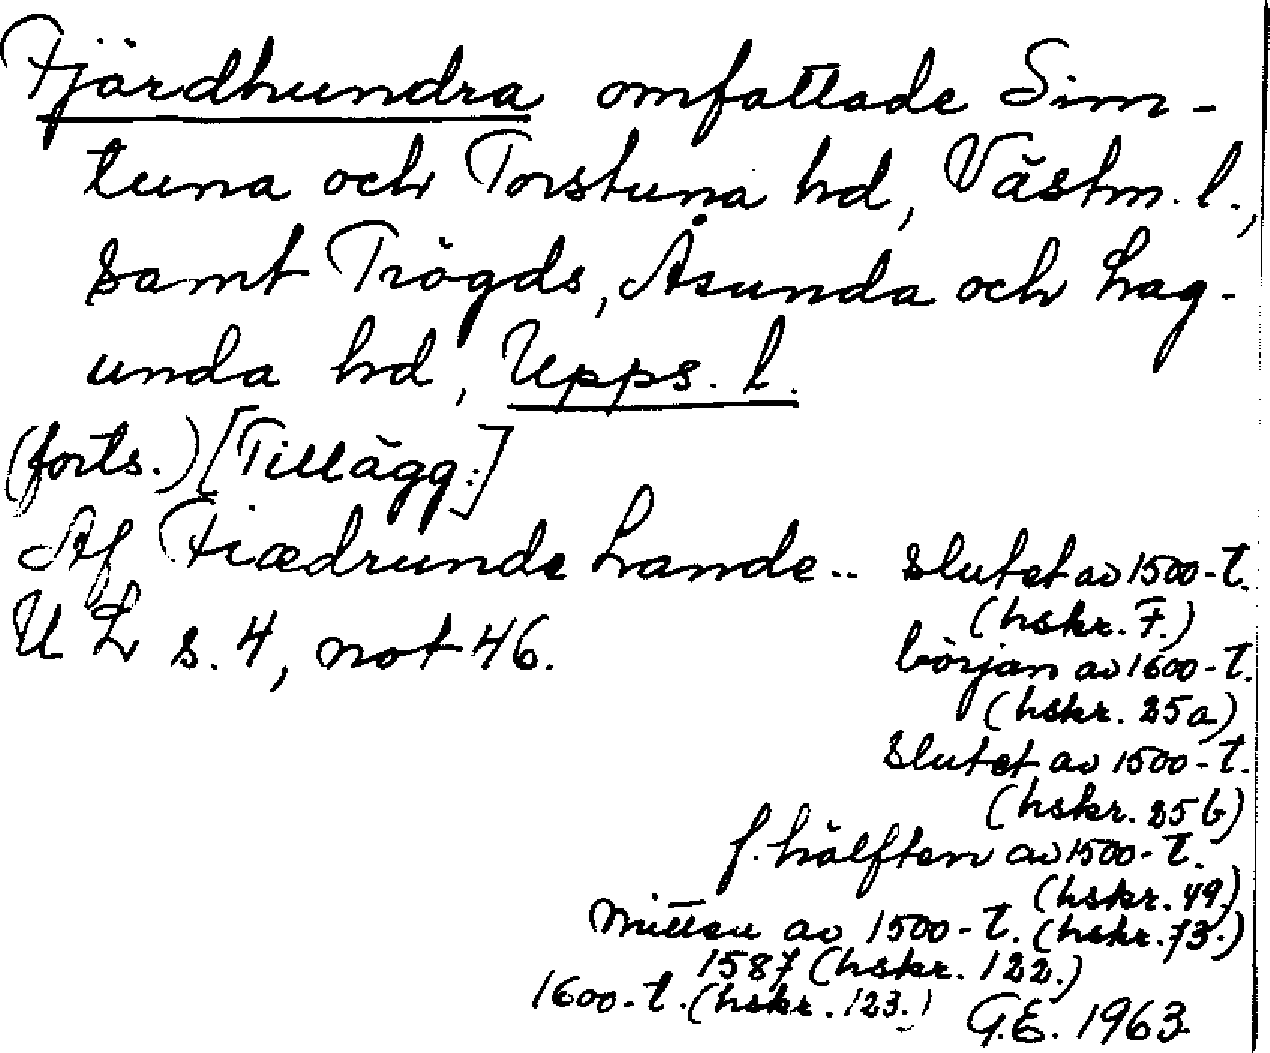 Fjärdhundra omfattade Sim-
tuna och Torstuna hd, Västm. l.,
samt Trögds, Åsunda och Lag-
unda hd, Upps. l.
(forts.) [Tillägg.]
Af Fiædrunde Lande.. slutet av 1500-t.
(hskr. 7.)
U L s. 4, not 46.
början av 1600-t.
(hskr. 25a)
slutet av 1500-t.
(hskr. 25b)
f. hälften av 1500-t.
(hskr. 49)
mitten av 1500-t. (hskr. 73.)
1587 (hskr. 122.)
1600-t. (hskr. 123.)
G.E. 1963